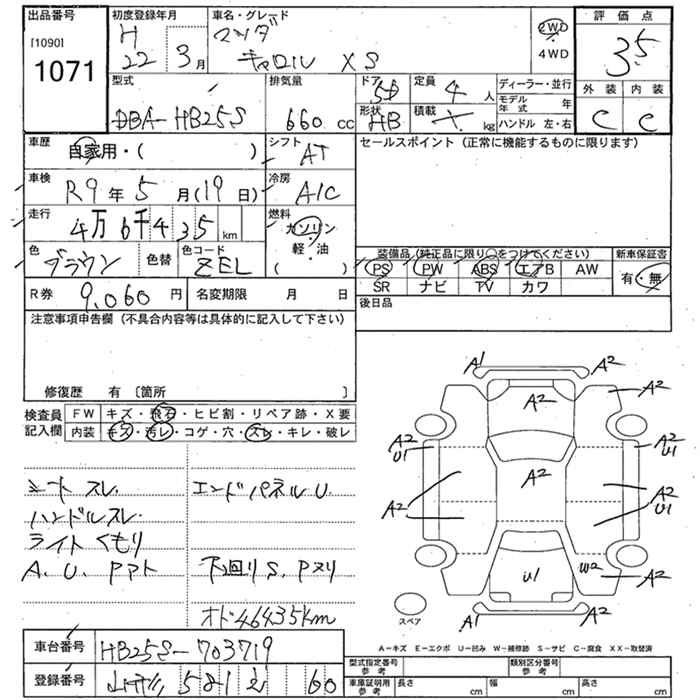 出品番号
[1090]
1071
初度登録年月
H
22 3月
車名・グレード
マツダ
キャロル XS
2WD
4WD
評価点
3.5
外装 内装
C C
型式
DBA-HB25S
排気量
660 cc
ドア
5D
形状
HB
定員
4 人
積載
kg
ディーラー・並行
モデル年式 年
ハンドル 左・右
車歴
自家用・( )
シフト
AT
セールスポイント (正常に機能するものに限ります)
車検
R9年5月(19日)
冷房
A/C
走行
4万6千435km
燃料
ガソリン
・
軽・油
( )
色
ブラウン
色替
色コード
ZEL
装備品 (純正品に限り○をつけてください)
新車保証書
PS PW ABS エアB AW
有・無
SR ナビ TV カワ
R券 9,060円 名変期限 月 日
後日品
注意事項申告欄 (不具合内容等は具体的に記入して下さい)
修復歴 有 〔箇所 〕
検査員
記入欄
FW キズ・飛石・ヒビ割・リペア跡・X要
内装 キズ・汚レ・コゲ・穴・スレ・キレ・破レ
シートスレ
エンドパネルU.
ハンドルスレ
ライトくもり
A、U、Pアト
下回りS、Pヌリ
オド46435km
A1 A2
A2 A2
A2 U1
A2 U1
A2
A2
A2 U1
U1 W2 A2
A1 A2
スペア
A-キズ E-エクボ U-凹み W-補修跡 S-サビ C-腐食 XX-取替済
車台番号 HB25S-703719
登録番号 581 60
型式指定番号
参考
類別区分番号
参考
車庫証明用
参考
長さ cm
幅 cm
高さ cm